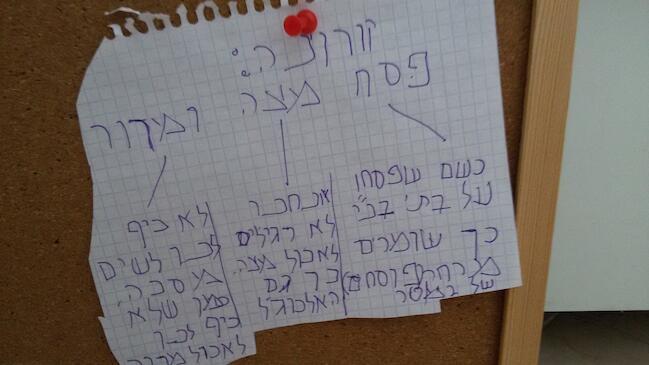 קורונה:
פסח מצה ומרור
כשם שפסחו
על בתי בנ"י
כך שומרים
מרחק (פוסחים)
של
אנחנו
לא רגילים
לאכול מצה
כך גם
האלכוג'ל
לא כיף
לנו לשים
מסכה
כמו שלא
כיף לנו
לאכול מרור